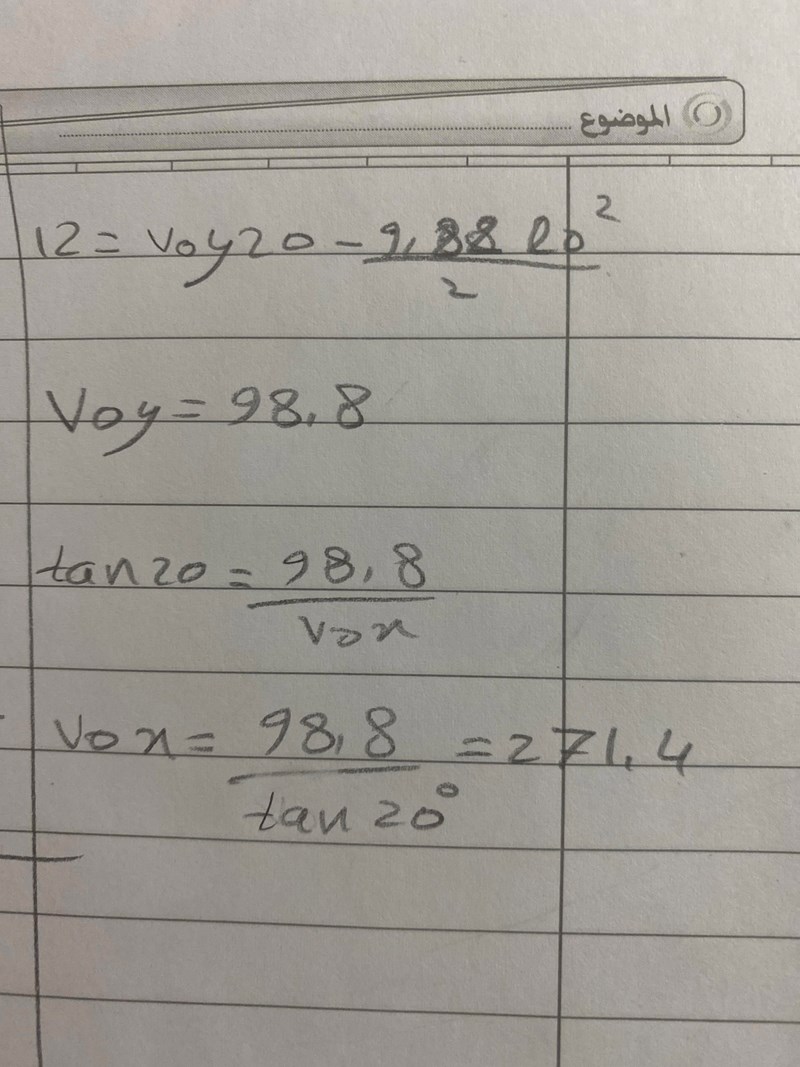 الموضوع
12 = Voy20 - 9,88 20²
2
Voy = 98,8
tan20 = 98,8
Vox
Vox = 98,8 = 271,4
tan 20°